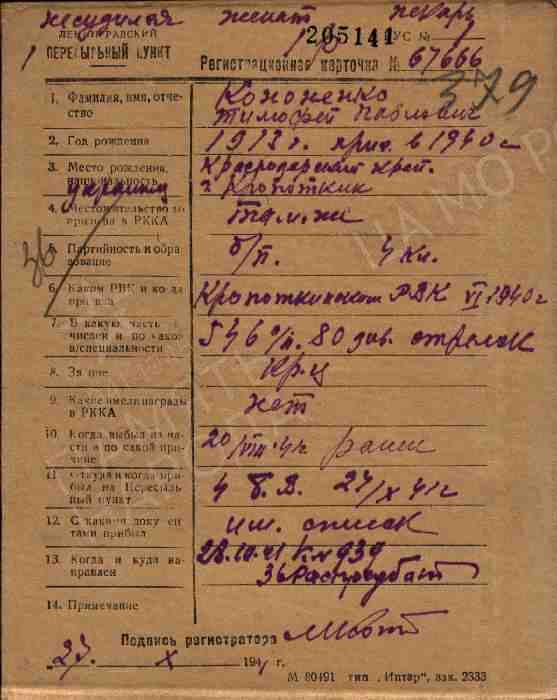 несудимая женат пекарь
ЛЕНИНГРАДСКИЙ 205141 УС №
ПЕРЕСЫЛЬНЫЙ ПУНКТ
Регистрационная карточка № 67666
379
1. Фамилия, имя, отчество Кононенко
Тимофей Павлович
2. Год рождения 1913 г. приз. в 1940 г
3. Место рождения, национальность Краснодарский край.
украинец г. Кропоткин
4. Местожительство до призыва в РККА там же
5. Партийность и образование б/п. 4 кл.
36
6. Каким РВК и когда призван Кропоткинском РВК VI 1940 г
7. В какую часть зачислен и по какой в/специальности 546 с/п. 80 див. стрелок
8. Звание Кр-ц
9. Какие имел награды в РККА нет
10. Когда выбыл из части и по какой причине 20/VIII 41 ранен
11. Откуда и когда прибыл на Пересыльный пункт 4 Б.В. 27/X 41 г
12. С какими документами прибыл им. список
13. Когда и куда направлен 28.10.41 К. 939
14. Примечание
Подпись регистратора
27. X 1941 г.
М 80491 тип „Интар“, зак. 2333
ЦА МО Р